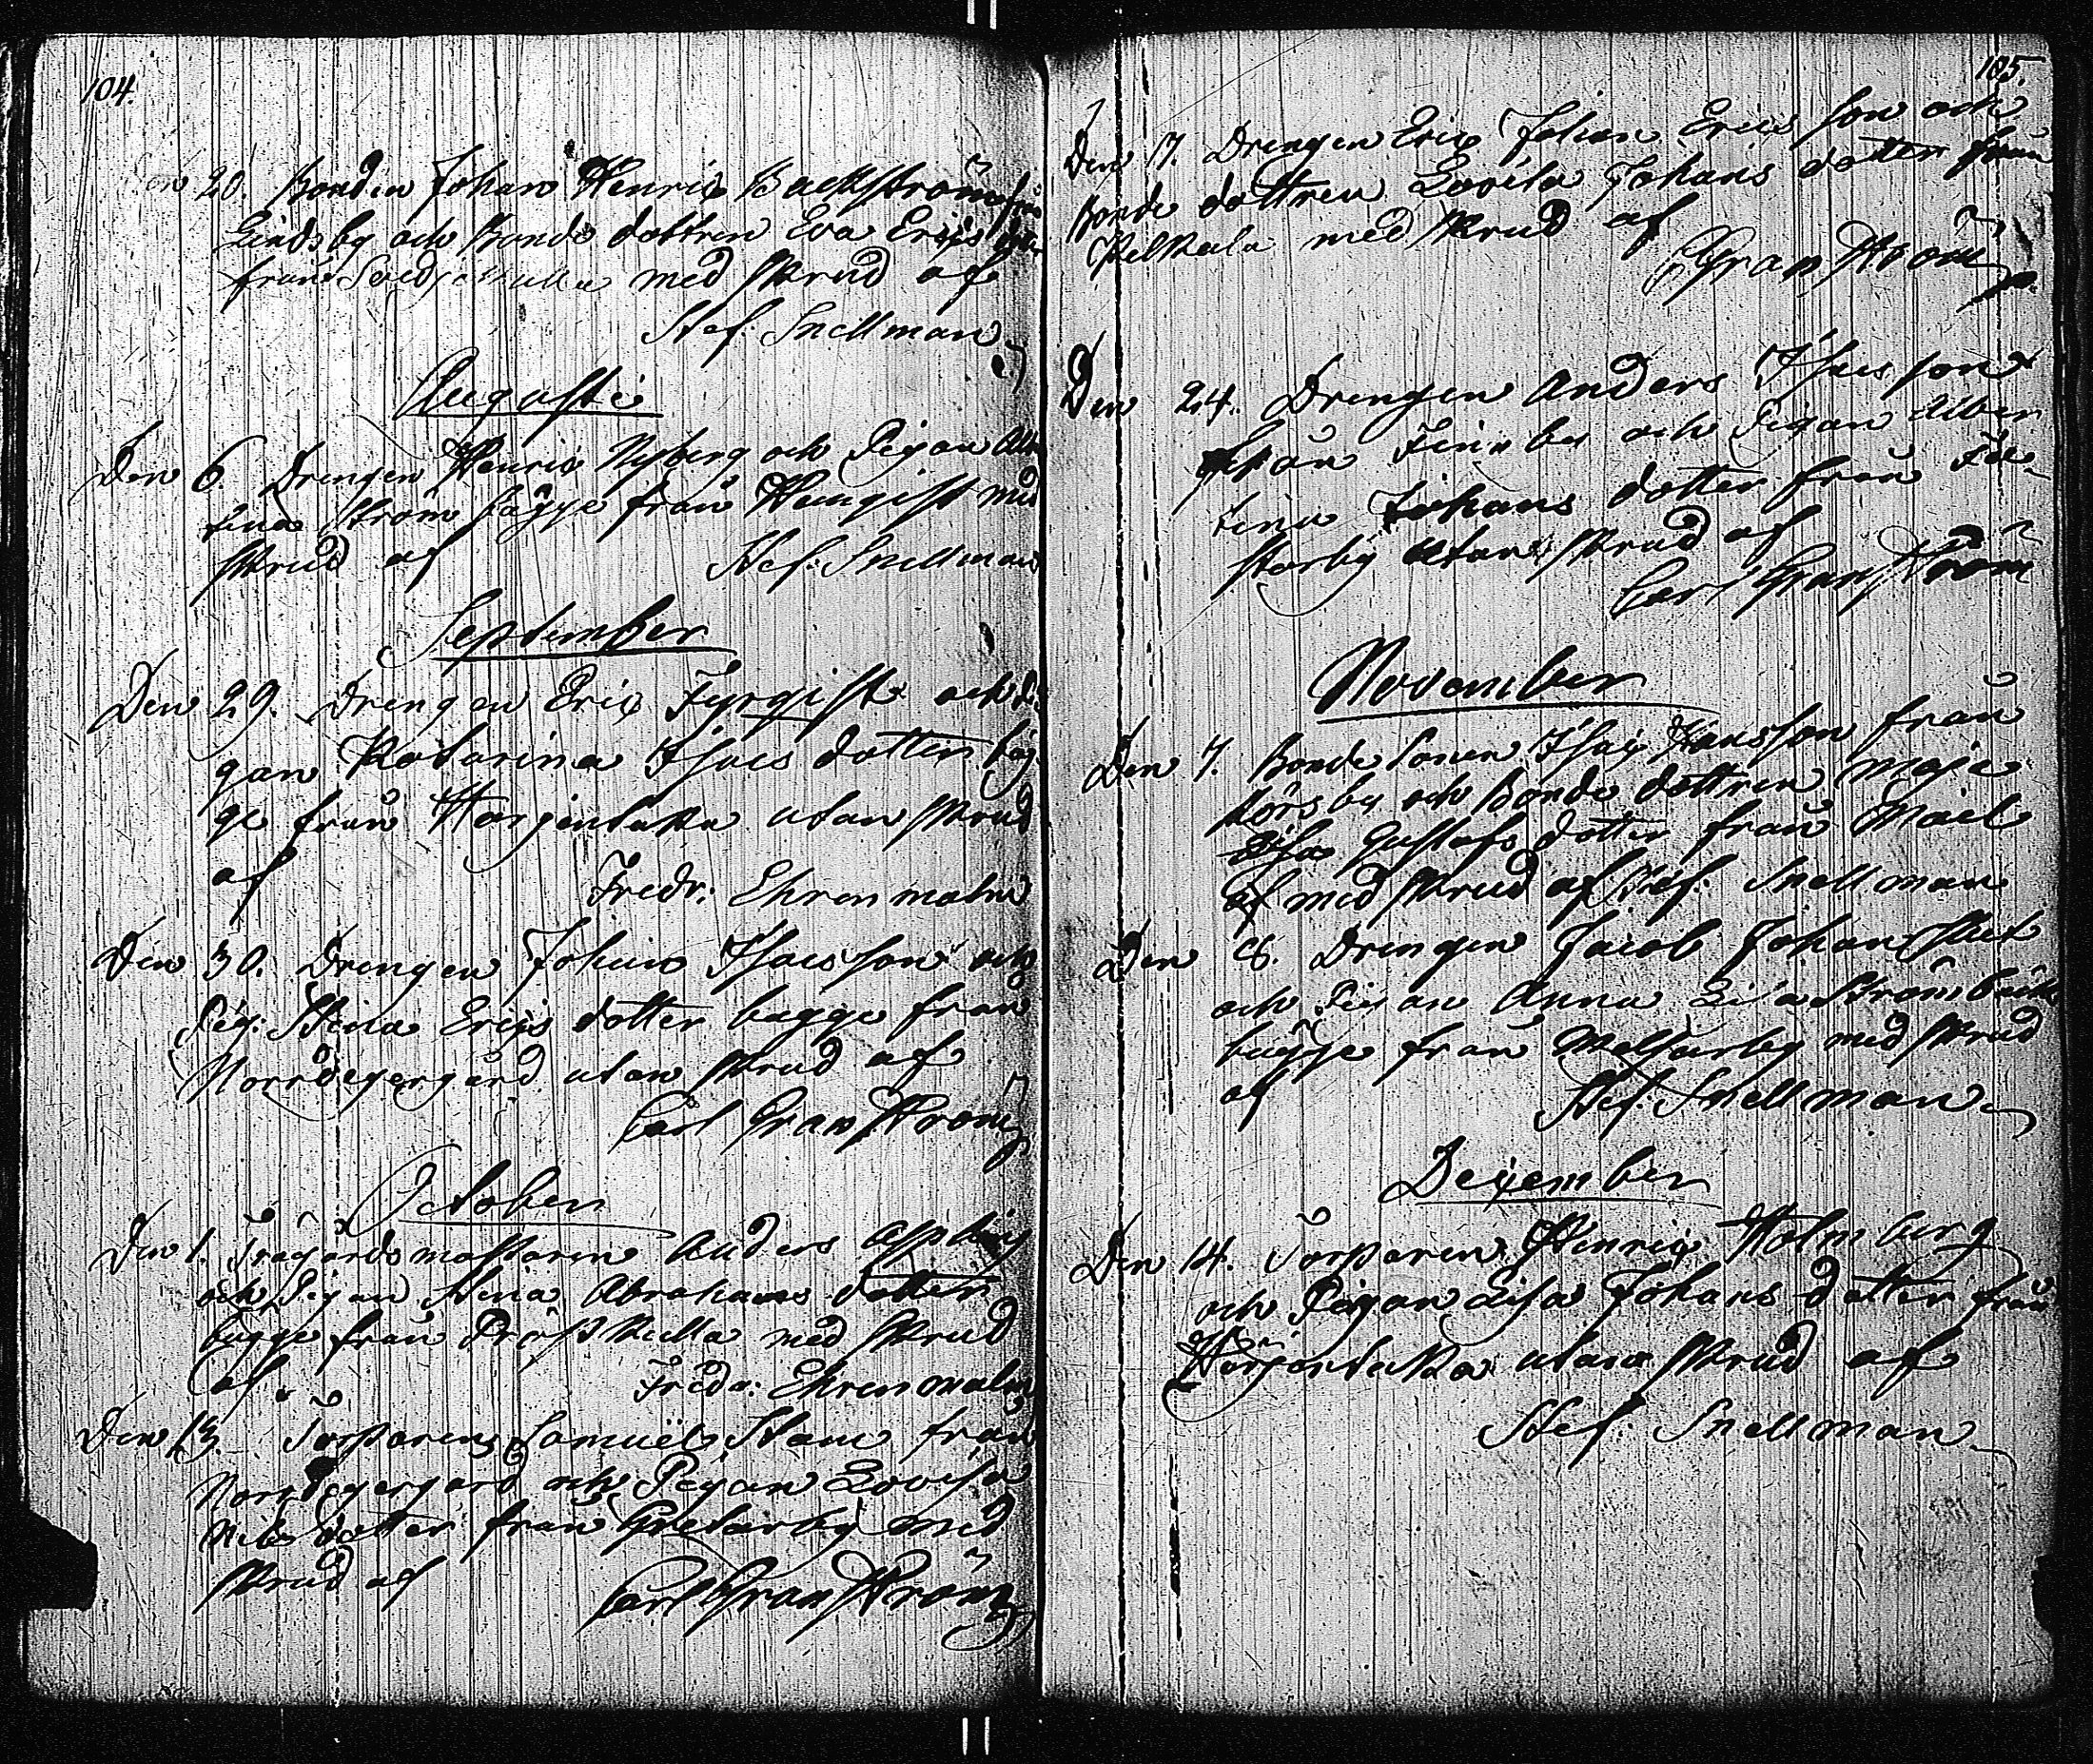 104.
Den 20. Bonden Johan Henrix Backström från
Lindsby och Bonde dottren Eva Erixs
från med skrud af
Stef. Snellman
Augusti
Den 6. Drengen Henrix Nyberg och Pigan
Ström bägge från Hemgift med
skrud af Stef. Snellman
September
Den 29. Drengen Erix Fyrgift och Pi
gan Katarina Isacs dotter bäg
ge från Harjentaka utan skrud
af
Fredr. Ehrenmalm
Den 30. Drengen Johan Isacsson och
Pig. Stina Erixs dotter bagge från
Norrdegergård utan skrud af
Carl Granström
October
Den 1. Tregårds mästaren Anders
och Pigan Stina Abrahams dotter
bägge från Prästkulla med skrud
af. Fredr. Ehrenmalm
Den 13. Torparen Samuel Stam från
Norrdegergård och Pigan Lovisa
Nils dotter från Gretarby med
skrud af
Carl Granström
105.
Den 17. Drengen Erix Johan Erics son och
Bonde dottren Lovisa Johans dotter från
Pelkala med skrud af
Granström
Den 24. Drengen Anders Isacs son
från Finnby och Pigan Alber
tina Johans dotter från
starby utan skrud af
Carl Granström
November
Den 7. Bonde Sonen Isax Hansson från
Körsby och Bonde dottren Maja
Lisa Gustafs dotter från
med skrud af Stef. Snellman
Den 8. Drengen Jacob Johan
och Pigan Anna Lisa Strömbäck
bägge från med skrud
af
Stef. Snellman
December
Den 14. Torparen Henrix Holmberg
och Pigan Lisa Johans dotter från
Harjentaka utan skrud af
Stef. Snellman